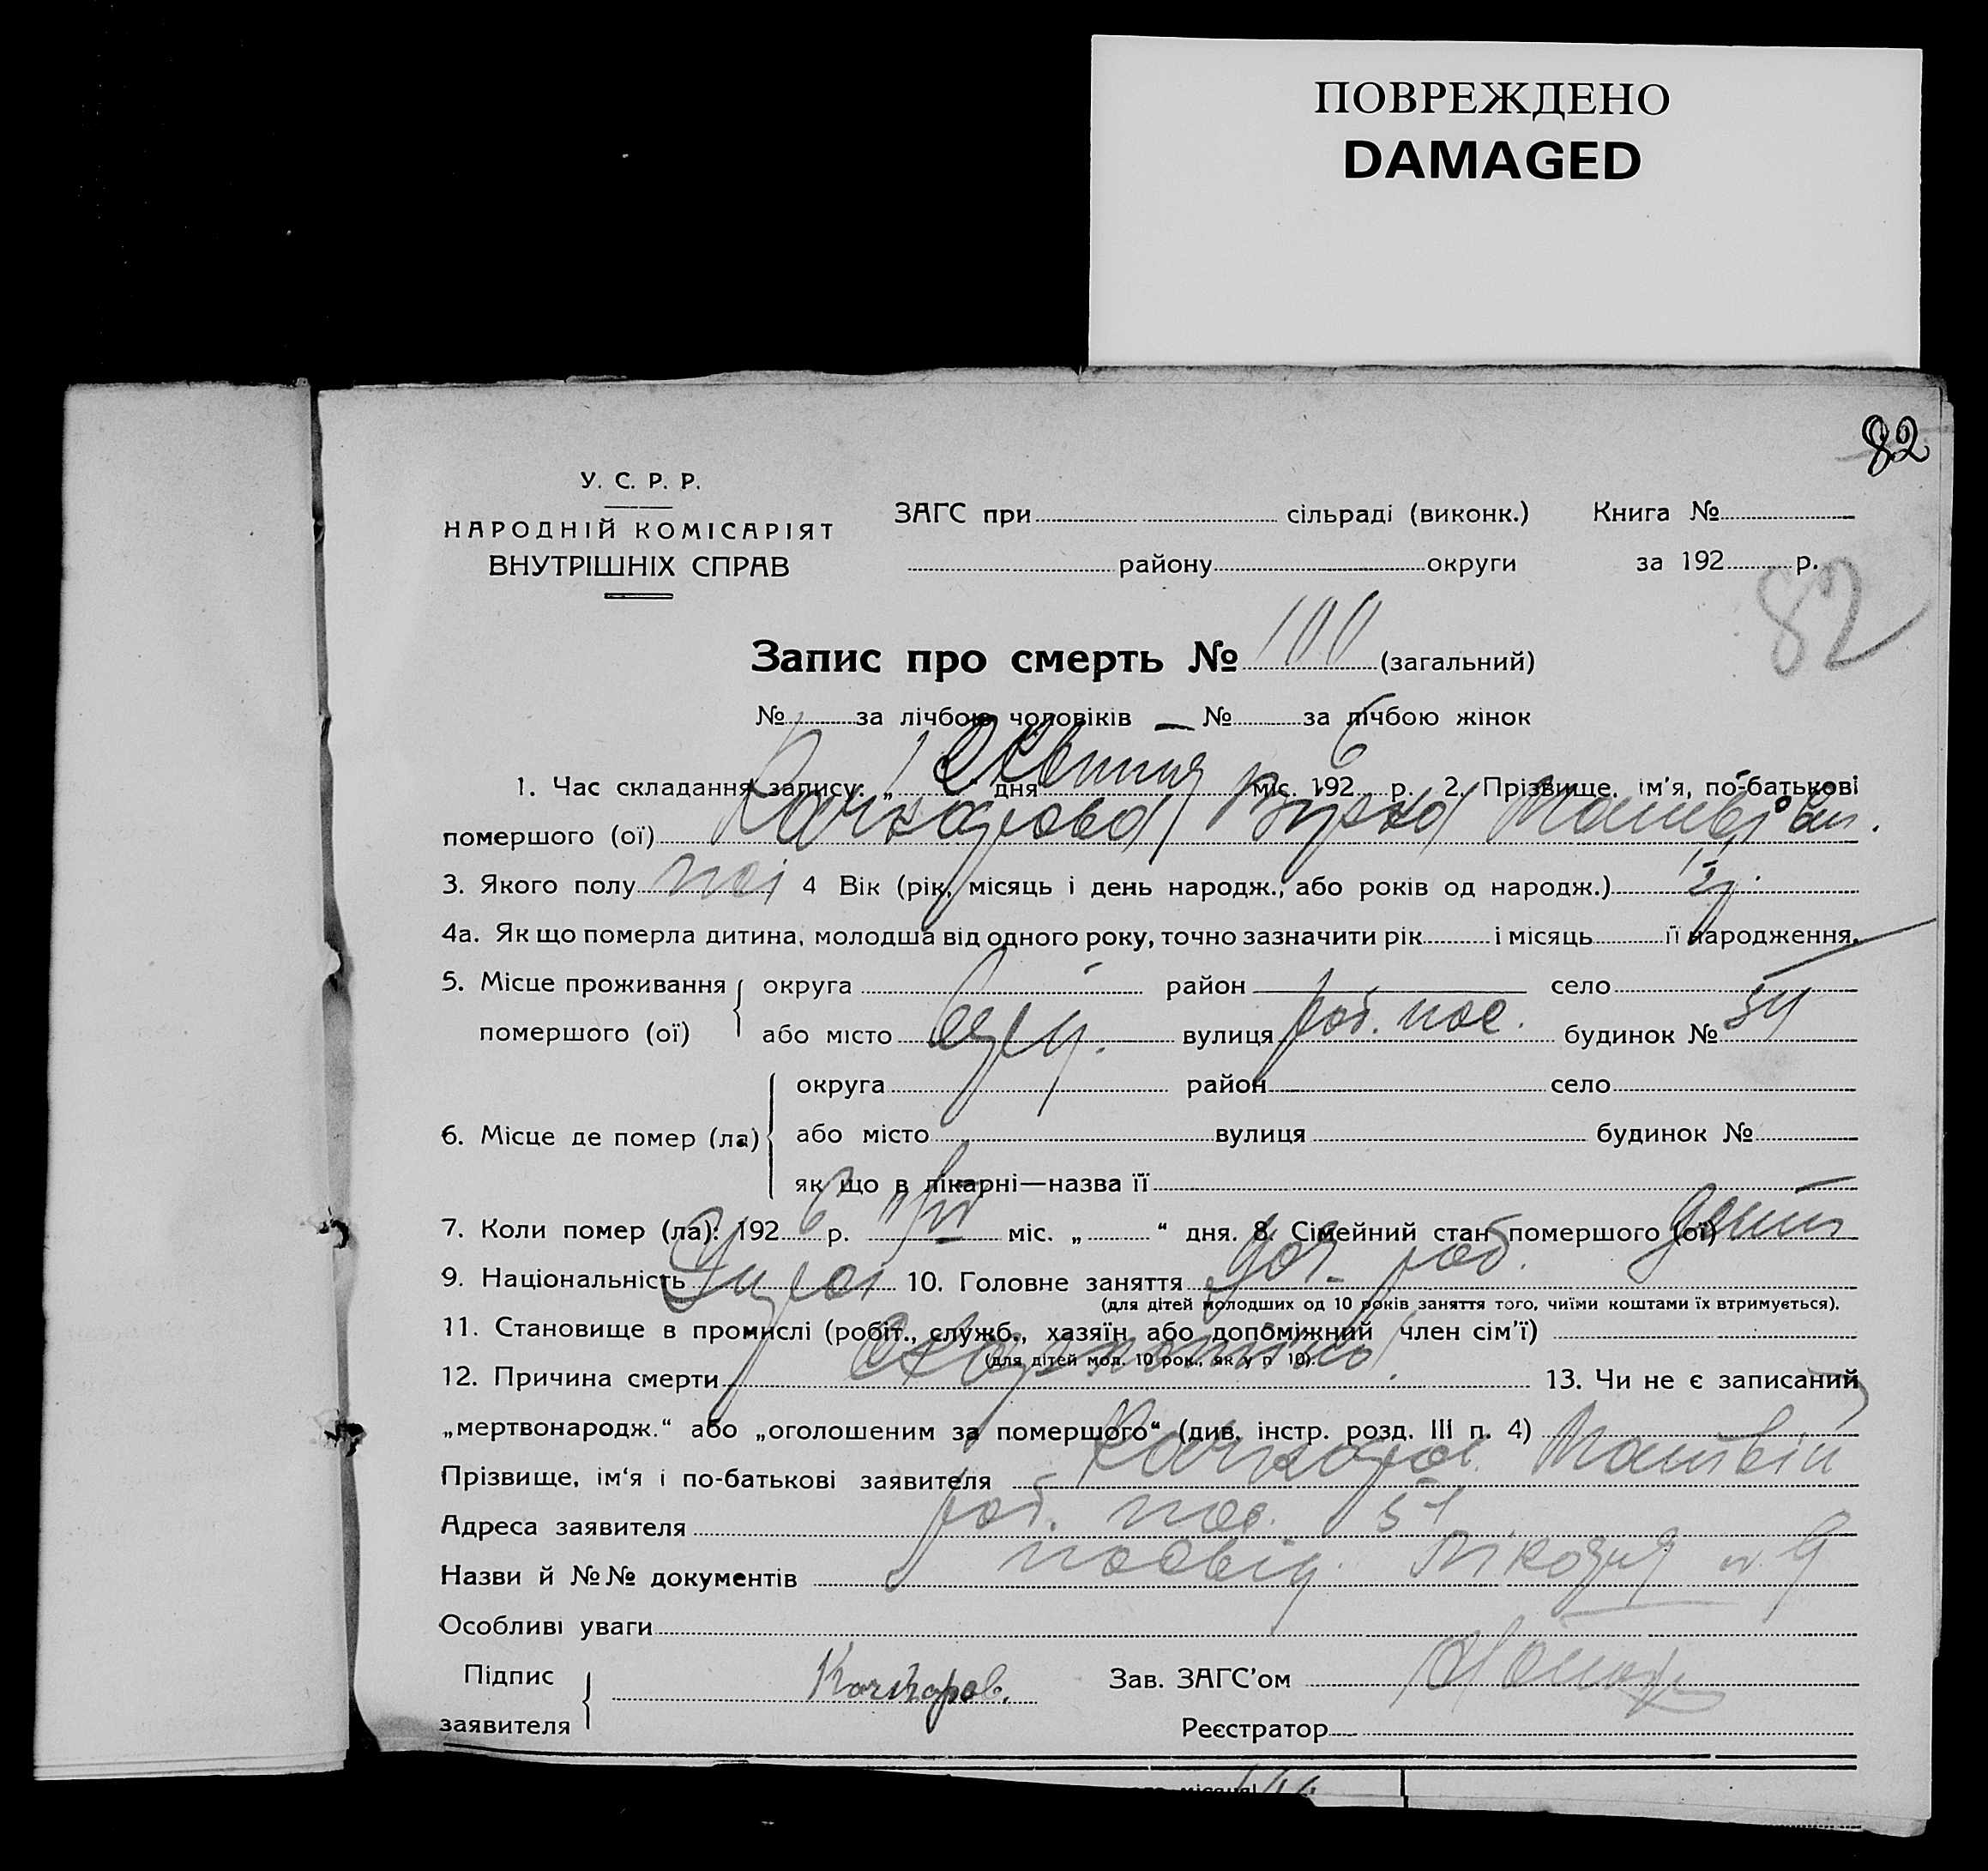 ПОВРЕЖДЕНО
DAMAGED
82
У. С. Р. Р.
НАРОДНІЙ КОМІСАРІЯТ
ВНУТРІШНІХ СПРАВ
ЗАГС при сільраді (виконк.) Книга №
району округи за 192 р.
82
Запис про смерть № 100 (загальний)
№ за лічбою чоловіків — № за лічбою жінок
1. Час складання запису: „ 2 дня Квітня міс. 192 6 р. 2. Прізвище, ім'я, по-батькові
помершого (ої) Качкарова Матвіївн.
3. Якого полу 4 Вік (рік, місяць і день народж., або років од народж.)
4а. Як що померла дитина, молодша від одного року, точно зазначити рік і місяць її народження.
5. Місце проживання округа район село
помершого (ої) або місто вулиця роб. пос. будинок № 54
округа район село
6. Місце де помер (ла) або місто вулиця будинок №
як що в лікарні—назва її
7. Коли помер (ла): 192 6 р. міс. „ “ дня. 8. Сімейний стан помершого (ої)
9. Національність 10. Головне заняття роб.
(для дітей молодших од 10 років заняття того, чиїми коштами їх втримується).
11. Становище в промислі (робіт., служб., хазяїн або допоміжний член сім'ї)
(для дітей мол. 10 рок., як у п. 10).
12. Причина смерти Скарлатина 13. Чи не є записаний
„мертвонародж.“ або „оголошеним за помершого“ (див. інстр. розд. III п. 4)
Прізвище, ім'я і по-батькові заявителя Качкаров Матвій
Адреса заявителя роб. пос. 54
Назви й №№ документів посвід. Лікаря № 9
Особливі уваги
Підпис
заявителя Качкаров. Зав. ЗАГС'ом
Реєстратор